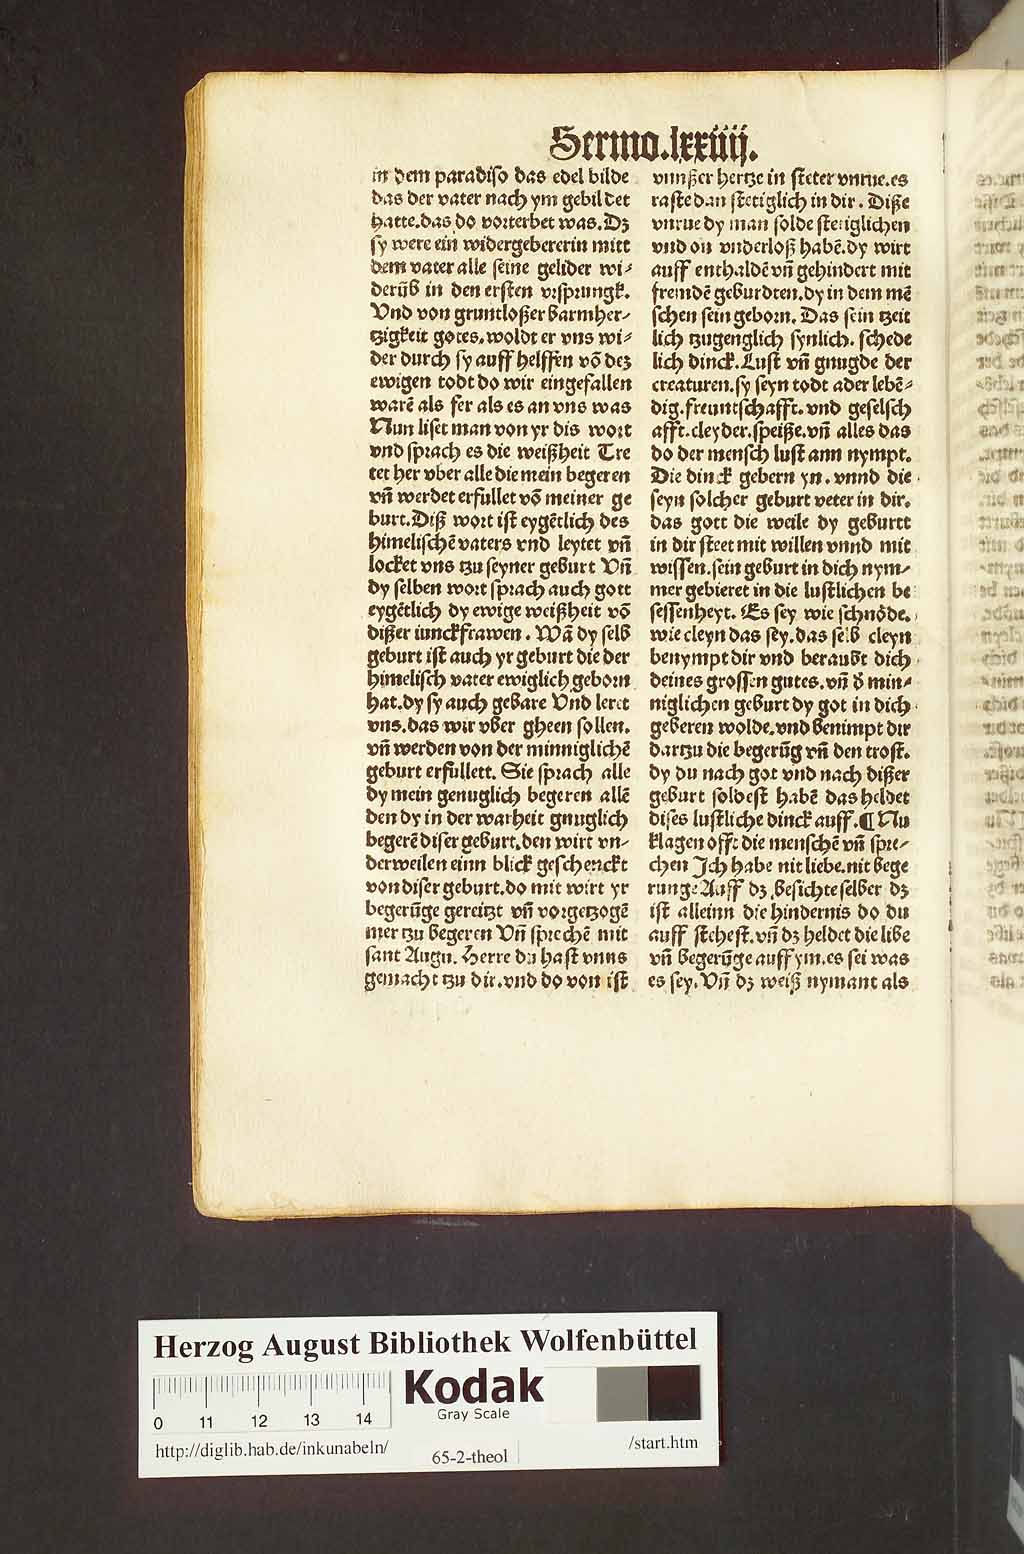 Sermo.lxxiiij.
in dem paradiso das edel bilde
das der vater nach ym gebildet
hatte.das do vorterbet was.Dz
sy were ein widergebererin mitt
dem vater alle seine gelider wi⸗
derūb in den ersten vrsprungk.
Vnd von gruntloßer barmher⸗
tzigkeit gotes.woldt er vns wi⸗
der durch sy auff helffen vō dez
ewigen todt do wir eingefallen
warē als fer als es an vns was
Nun liset man von yr dis wort
vnd sprach es die weißheit Tre
tet her vber alle die mein begeren
vn̄ werdet erfullet vō meiner ge
burt.Diß wort ist eygētlich des
himelischē vaters vnd leytet vn̄
locket vns tzu seyner geburt Vn̄
dy selben wort sprach auch gott
eygētlich dy ewige weißheit vō
dißer iunckfrawen. Wā dy selb
geburt ist auch yr geburt die der
himelisch vater ewiglich geborn
hat.dy sy auch gebare Vnd leret
vns.das wir vber gheen sollen.
vn̄ werden von der minniglichē
geburt erfullett. Sie sprach alle
dy mein genuglich begeren allē
den dy in der warheit gnuglich
begerē diser geburt.den wirt vn⸗
derweilen einn blick geschenckt
von diser geburt.do mit wirt yr
begerūge gereitzt vn̄ vorgetzogē
mer tzu begeren Vn̄ sprechē mit
sant Augu. Herre du hast vnns
gemacht tzu dir.vnd do von ist
vnnßer hertze in steter vnrue.es
raste dan stetiglich in dir. Diße
vnrue dy man solde stetiglichen
vnd on vnderloß habē.dy wirt
auff enthaldē vn̄ gehindert mit
fremdē geburdten.dy in dem mē
schen sein geborn. Das sein tzeit
lich tzugenglich synlich. schede
lich dinck.Lust vn̄ gnugde der
creaturen.sy seyn todt ader lebē⸗
dig.freuntschafft.vnd geselsch
afft.cleyder.speiße.vn̄ alles das
do der mensch lust ann nympt.
Die dinck gebern yn.vnnd die
seyn solcher geburt veter in dir.
das gott die weile dy geburtt
in dir steet mit willen vnnd mit
wissen.sein geburt in dich nym⸗
mer gebieret in die lustlichen be
sessenheyt. Es sey wie schnöde.
wie cleyn das sey.das selb cleyn
benympt dir vnd beraubt dich
deines grossen gutes.vn̄ d̓ min⸗
niglichen geburt dy got in dich
geberen wolde.vnd benimpt dir
dartzu die begerūg vn̄ den trost.
dy du nach got vnd nach dißer
geburt soldest habē das heldet
dises lustliche dinck auff.¶Nu
klagen offt die menschē vn̄ spre⸗
chen Ich habe nit liebe.nit bege
runge Auff dz besichte selber dz
ist alleinn die hindernis do du
auff stehest.vn̄ dz heldet die libe
vn̄ begerūge auff ym.es sei was
es sey. Vn̄ dz weiß nymant als
Herzog August Bibliothek Wolfenbüttel
Kodak
Gray Scale
0 11 12 13 14
http://diglib.hab.de/inkunabeln/
65-2-theol
/start.htm